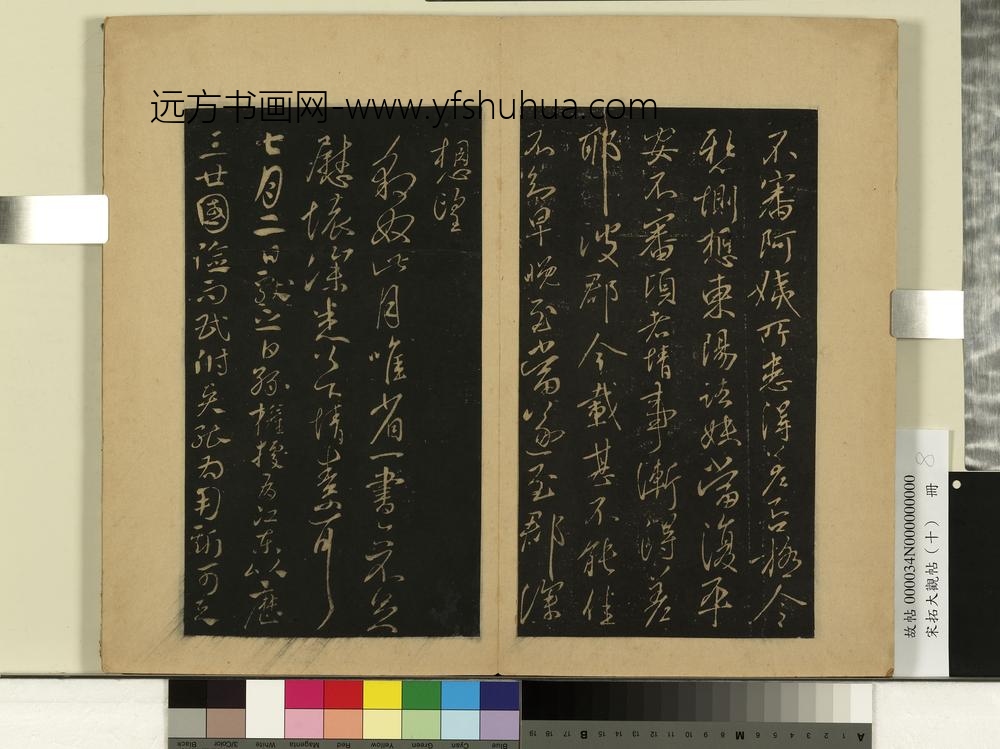 远方书画网-www.yfshuhua.com
不審阿姨所患得差否極令
悲惻想東陽諸妹當復平
安不審頃者情事漸得差
耶彼郡今載甚不能佳
不知早晚至當遂至郡深
想望
知奴此月唯省一書亦不足
慰懷深悉足下情素耳
七月二日獻之白孫權據有江東以歷
三世國險而民附 能為用斯可
故帖 000034N000000000
宋拓大觀帖（十） 冊
8
Blue
Cyan
Green
Yellow
Red
Magenta
White
3/Color
Black
A 1 2 3 4 5 6 M 8 9 10 11 12 13 14 15 B 17 18 19